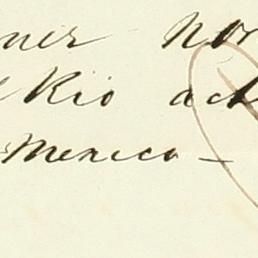 ner nor
l Rio act
Mexico -